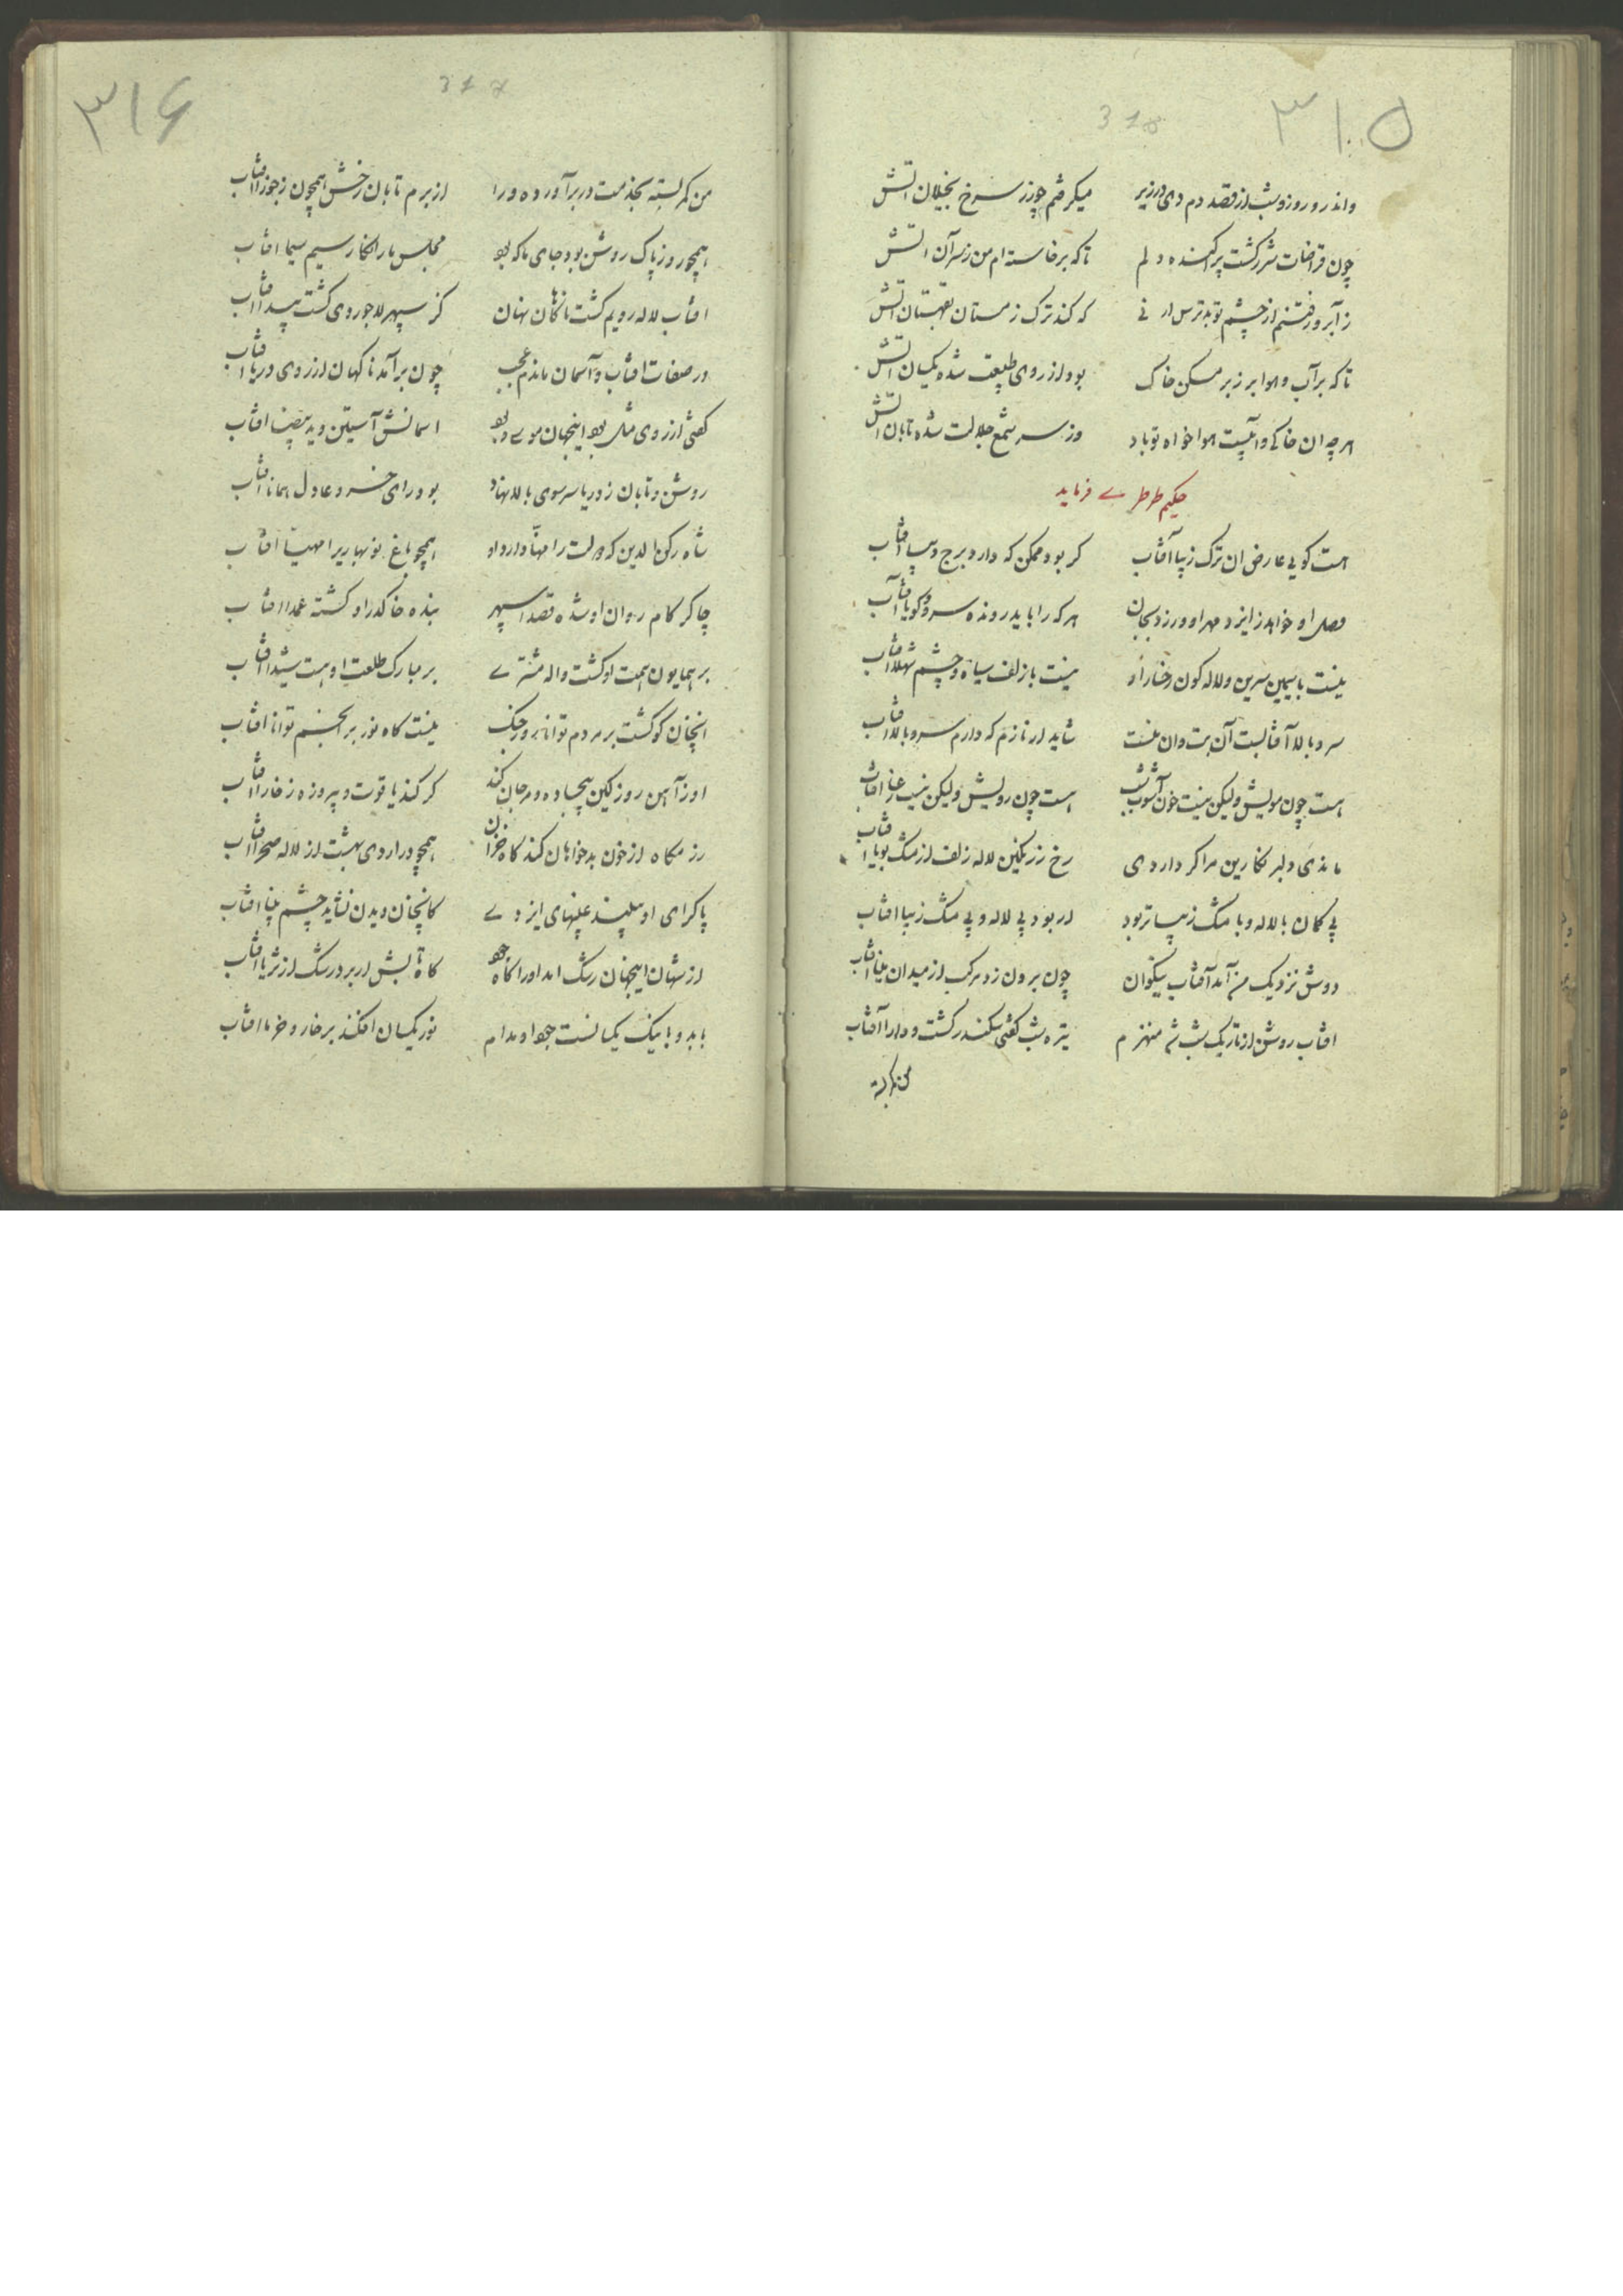 ۳۱۵
318
واندرو روز و شب از قصد دم دی در زیر میکرفتم چو زر سرخ بخیلان آتش
چون قراضات شرر کشت پراکنده دلم تا که برخاسته ام من ز سر آن آتش
ز آب رو رفتنم از چشم تو بد ترس که کند ترک زمستان آتش
تا که بر آب و هوا بر زبر مسکن خاک بود از روی طبیعت شده یکسان آتش
هرچه آن خاکی و آبیست هواخواه تو باد وز سر شمع جلالت شده تابان آتش
حکیم طرطری فرماید
هست کویی عارض ان ترک زیبا آفتاب کر بود ممکن که دارد برج دیبا آفتاب
وصل او خواهد ز ایزد مهر او ورزد بجان هر که را باید رونده سرو و کویا آفتاب
نیست با سیمین سرین و لاله کون رخسار او نیست با زلف سیاه و چشم شهلا آفتاب
سرو بالا آفتابست آن بت و ان نیست شاید ار نازم که دارم سرو بالا آفتاب
هست چون مویش ولیکن نیست خون آشوب شب هست چون رویش ولیکن نیست رعنا آفتاب
ماندی دلبر نکارین مرا کر داردی رخ ز رنکین لاله زلف از مشک بویا آفتاب
بی کمان با لاله و با مشک زیباتر بود ار بود بی لاله و بی مشک زیبا آفتاب
دوش نزدیک من آمد آفتاب نیکوان چون برون زد مرکب از میدان مینا آفتاب
افتاب روشن از تاریک شب شد منهزم تیره شب کفتی سکندر کشت و دارا آفتاب
من کمر بسته
۳۱۶
317
من کمر بسته بخدمت در بر آورده ورا از برم تابان رخش همچون ز جوزا آفتاب
همچو روز پاک روشن بود جای ما که بود مجلس ما را نکار سیم سیما افتاب
افتاب لاله رویم کشت ناکاهان نهان کز سپهر لاجوردی کشت پیدا آفتاب
در صفات افتاب و آسمان ماندم عجب چون بر آمد ناکهان از روی دریا آفتاب
کفتی از روی مثل بود اینجهان موسی و بود اسمانش آستین و ید بیضا افتاب
روشن و تابان ز دریا سر سوی بالا نهاد بود رای خسرو عادل همانا آفتاب
شاه رکن الدین که دولت را مهنا دارد او همچو باغ نوبهاریرا مهیا افتاب
چاکر کام روان او شده قصدا سپهر بنده خاک در او کشته عمدا افتاب
بر همایون همت او کشت واله مشتری بر مبارک طلعت او هست شیدا آفتاب
انچنان کو کشت بر مردم توانا روز جنک نیست کاه نور بر انجم توانا افتاب
او ز آهن روز کین بیجاده و مرجان کند کر کند یاقوت و پیروزه ز خارا آفتاب
رزمکاه از خون بدخواهان کند کاه خزان همچو در اردی بهشت از لاله صحرا آفتاب
پاک رای او ببیند غیبهای ایزدی کانچنان دیدن نشاید چشم بینا افتاب
از شهان اینجهان رشک امد او را کاه جود کاه تابش ار برد رشک از ثریا آفتاب
با بد و با نیک یکسانست جود او مدام نور یکسان افکند بر خار و خرما افتاب